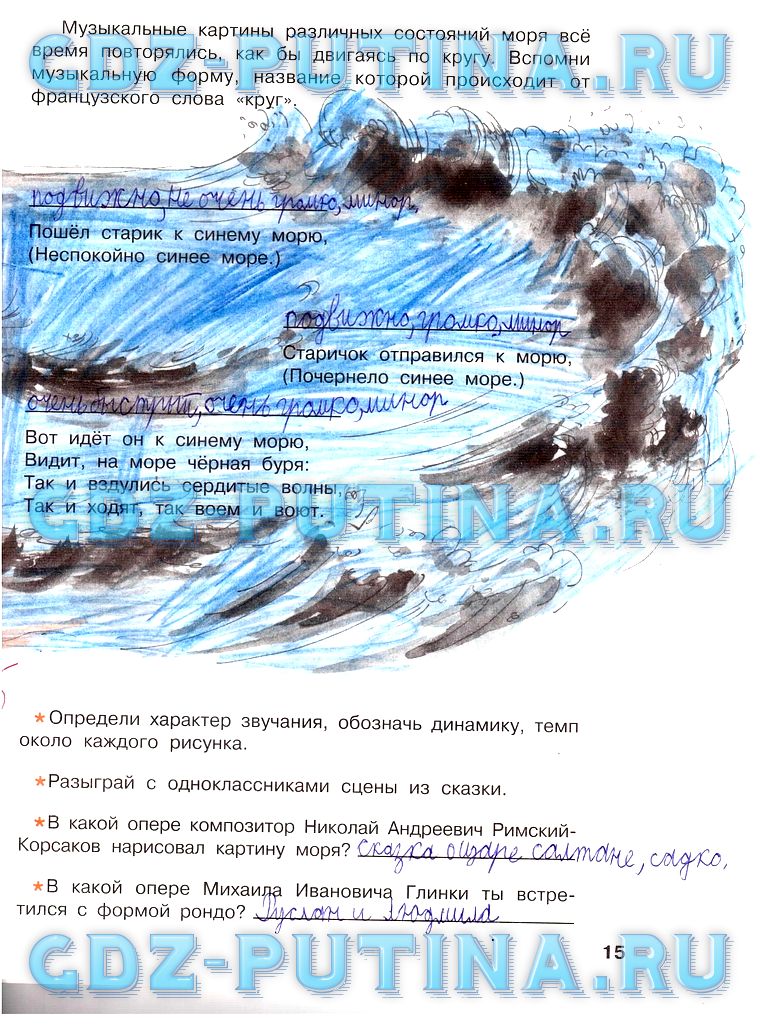 Музыкальные картины различных состояний моря всё
время повторялись, как бы двигаясь по кругу. Вспомни
музыкальную форму, название которой происходит от
французского слова «круг».
GDZ-PUTINA.RU
подвижно, не очень громко, минор.
Пошёл старик к синему морю,
(Неспокойно синее море.)
GDZ-PUTINA.RU
подвижно, громко, минор
Старичок отправился к морю,
(Почернело синее море.)
очень быстрый, очень громко, минор
Вот идёт он к синему морю,
Видит, на море чёрная буря:
Так и вздулись сердитые волны,
Так и ходят, так воем и воют.
GDZ-PUTINA.RU
*Определи характер звучания, обозначь динамику, темп
около каждого рисунка.
*Разыграй с одноклассниками сцены из сказки.
*В какой опере композитор Николай Андреевич Римский-
Корсаков нарисовал картину моря? Сказка о царе салтане, садко.
*В какой опере Михаила Ивановича Глинки ты встре-
тился с формой рондо? Руслан и Людмила
15
GDZ-PUTINA.RU